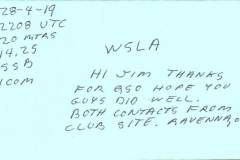 28-4-19
2208 UTC
20 MTRS
14.25
SSB
ICOM
WSLA
HI JIM THANKS
FOR QSO HOPE YOU
GUYS DID WELL.
BOTH CONTACTS FROM
CLUB SITE. RAVENNA,